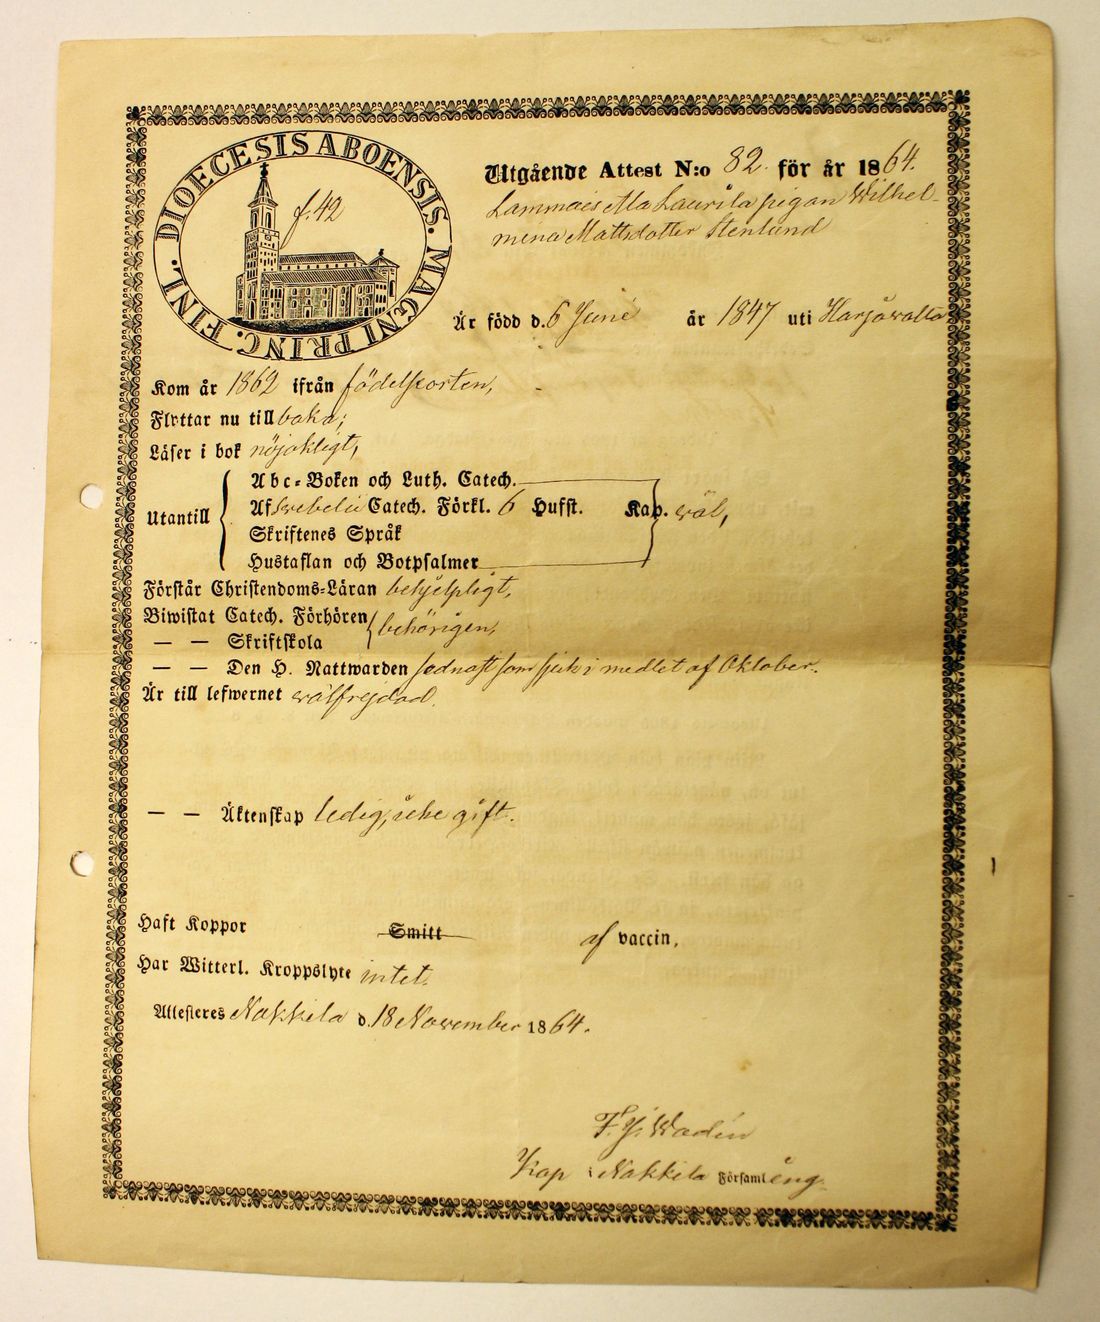 DIOECESIS ABOENSIS. MAGNI PRINC. FINL.
f. 42
Utgående Attest N:o 82. för år 1864.
Lammais Ma Laurila pigan Wilhel-
mena Mattsdotter Stenlund
Är född d. 6 Junii år 1847 uti Harjawalta
Kom år 1862 ifrån födelseorten,
Flyttar nu tillbaka;
Läser i bok nöjaktigt,
Abc-Boken och Luth. Catech.
Utantill Afswebelii Catech. Förkl. 6 Hufst. Kap. wäl,
Skriftenes Språk
Hustaflan och Botpsalmer
Förstår Christendoms-Läran behjelpligt,
Biwistat Catech. Förhören behörigen,
— — Skriftskola
— — Den H. Nattwarden sednast som sjuk i medlet af Oktober.
Är till lefwernet wälfrejdad.
— — Äktenskap ledig, icke gift.
Haft Koppor Smitt af vaccin.
Har Witterl. Kroppslyte intet.
Attesteres Nakkila d. 18 November 1864.
Wadén
Kap i Nakkila Församling.